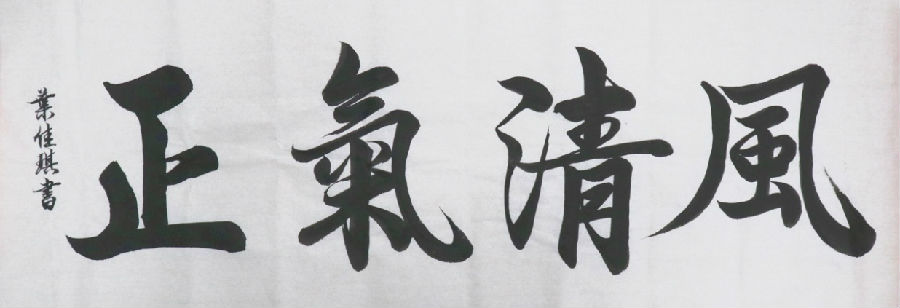 風清氣正
葉佳琪書